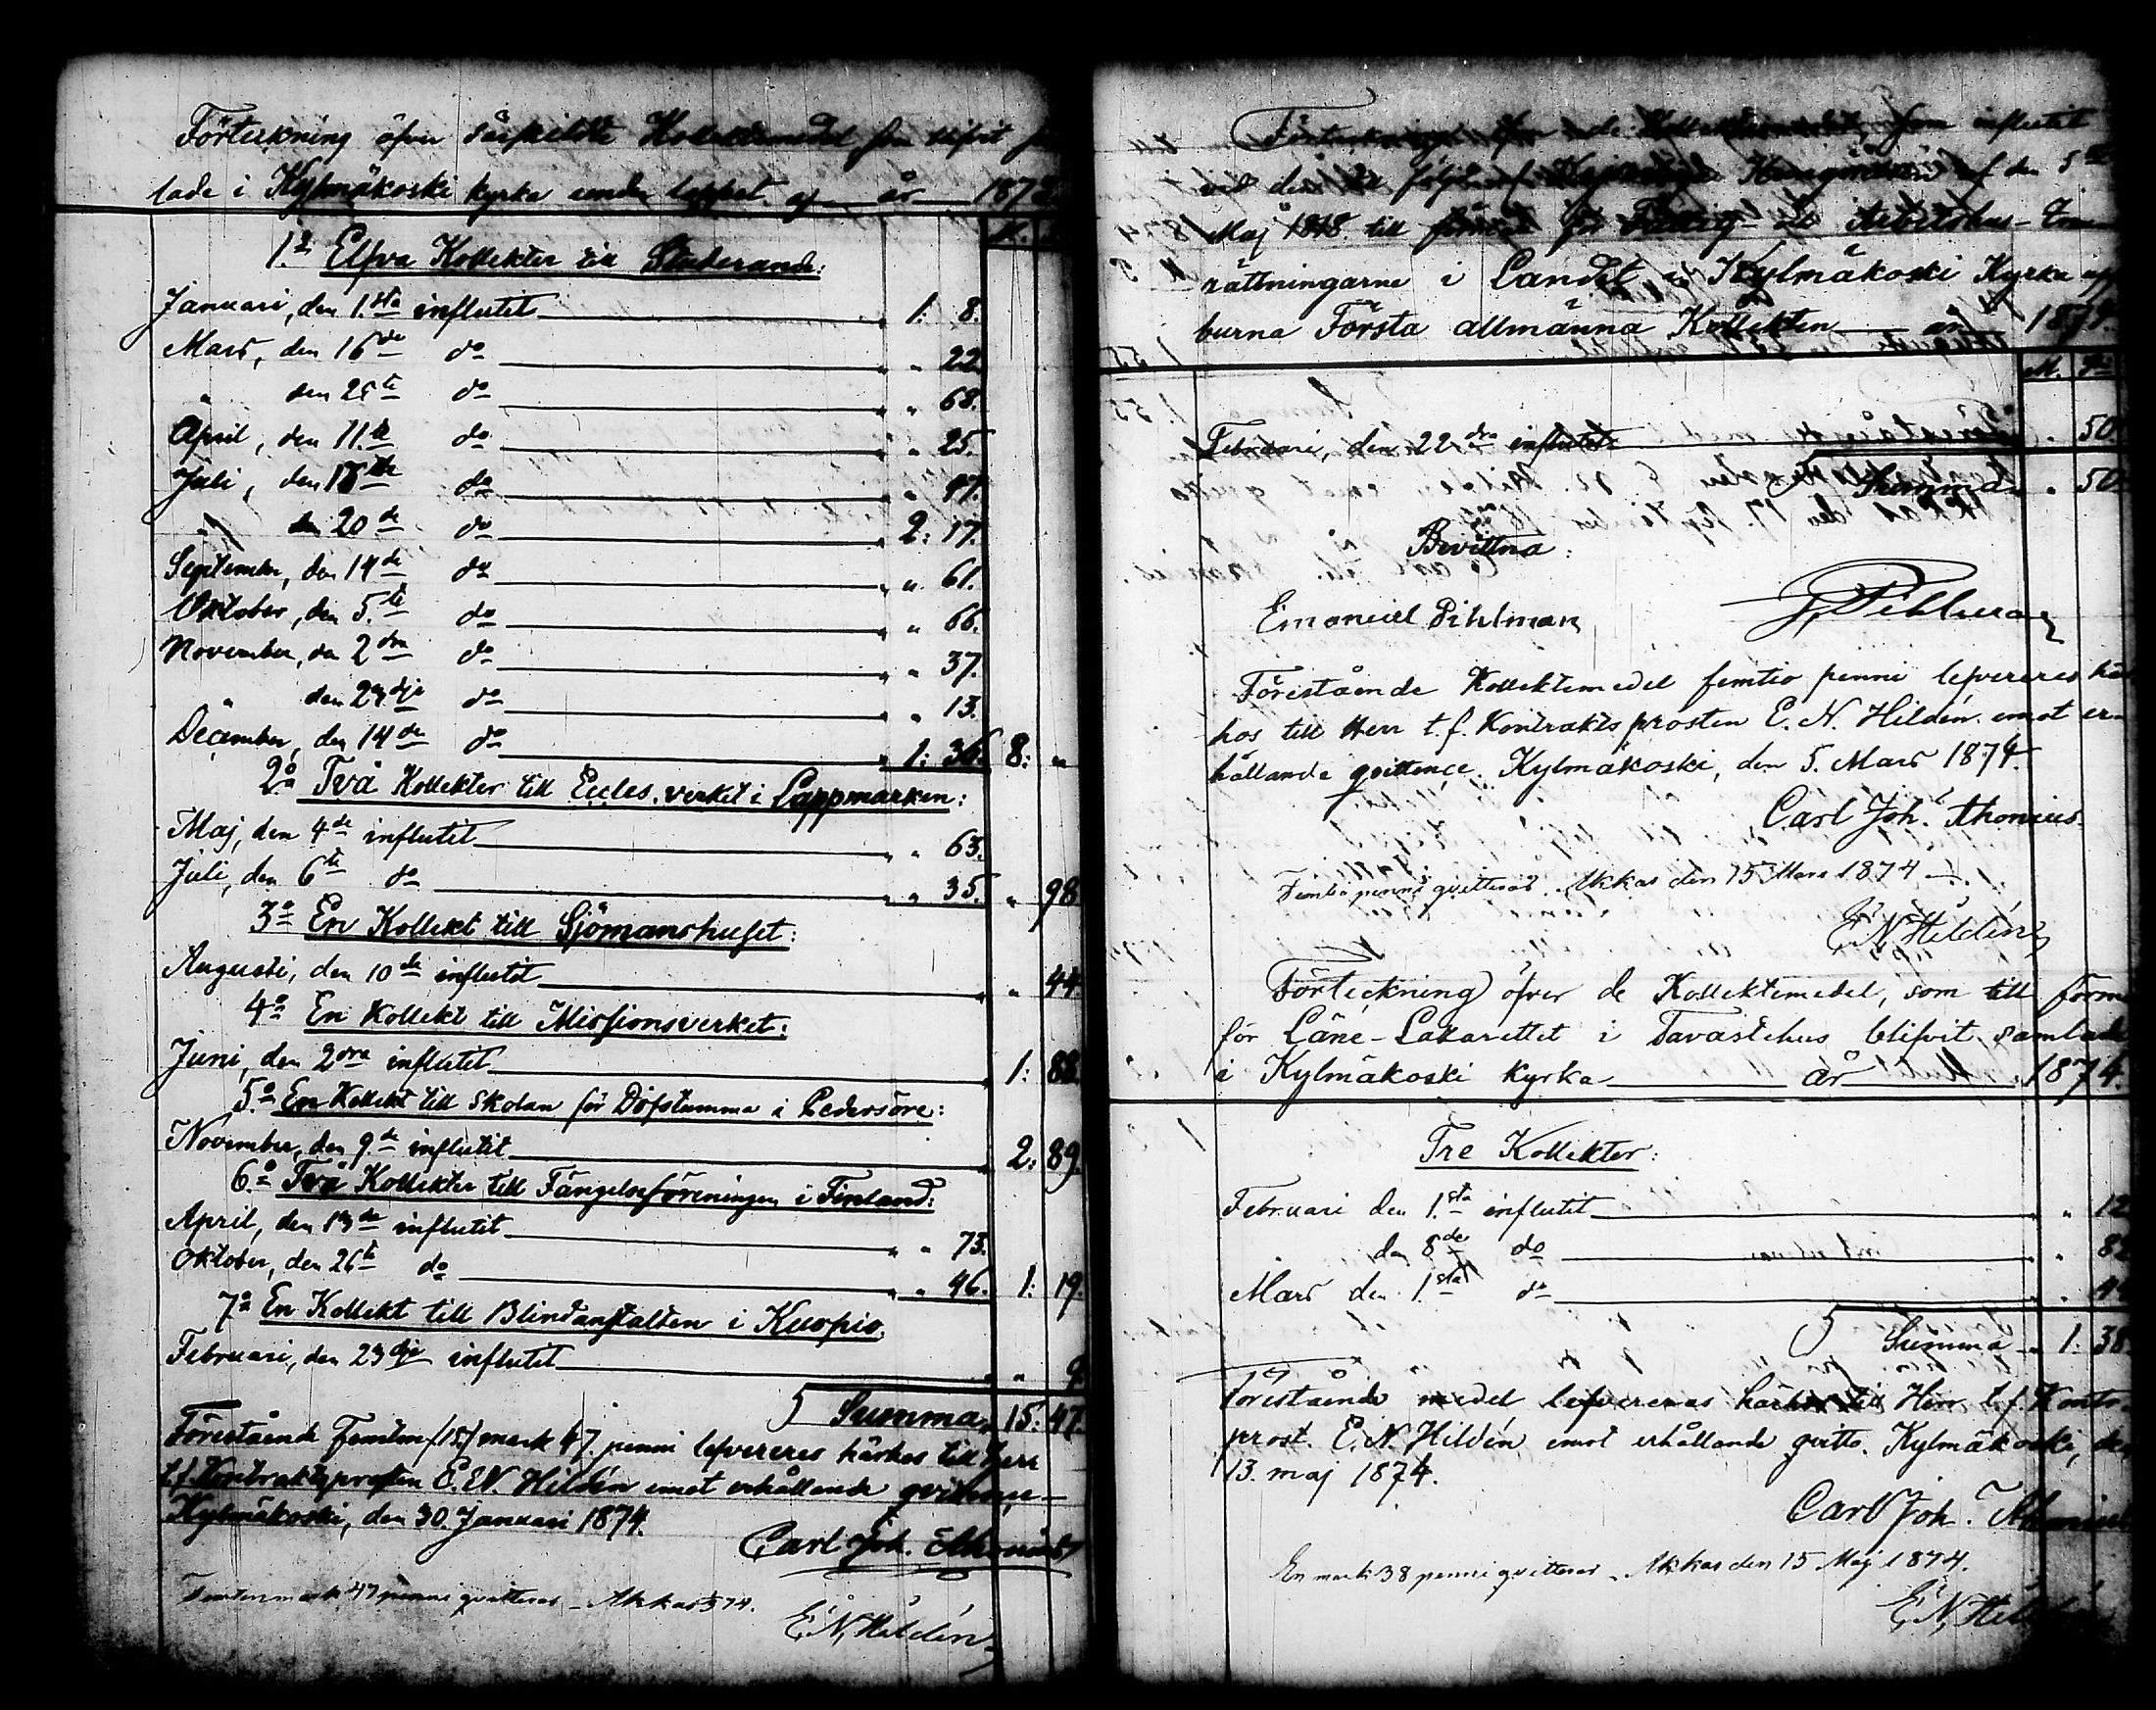 Förteckning öfver särskildta Kollektmedel som blifvit
lade i Kylmäkoski kyrka under loppet af år 187
M.
1.o Elfva Kollekter till Studerande:
Januari, den 1.sta influtit 1: 8.
Mars, den 16de do " 22
" den 25te do " 68.
April, den 11.te do " 25.
Juli, den do " 47.
" den 20de do 2: 17.
September, den 14de do " 61.
Oktober, den 5.te do " 66.
November, den 2dra do " 37.
" den 23dje do " 13.
December, den 14de do 1: 36. 8: "
2o Två Kollekter till Eccles. verket i Lappmarken:
Maj, den 4de influtit " 63.
Juli, den 6te do " 35. " 98
3o En Kollekt till Sjömanshuset:
Augusti, den 10de influtit " 44.
4o En Kollekt till Missionsverket:
Juni, den 2dra influtit 1: 88.
5.o En Kollekt till Skolan för Döfstumma i Pedersöre:
November, den 9.de influtit 2: 89.
6.o Två Kollekter till Fängelseföreningen i Finland:
April, den 13de influtit " 73.
Oktober, den 26te do " 46. 1: 19.
7o En Kollekt till Blindanstalten i Kuopio.
Februari, den 23dje influtit " 9.
Summa 15: 47.
Förestående Femton (15) mark 47. penni lefvereres härhos till Herr
t.f. Kontraktsprosten E. N. Hildén emot erhållande qvittence
Kylmäkoski, den 30. Januari 1874.
Carl Joh. Ahonius
Femton mark 47 penni qvitteras _ Akkas 74.
E. N. Hildén
Förteckning öfver de Kollektmedel, som influtit
vid den till följd af Kungörelse af den 5te
Maj 1818. till förmån för Fattig- Arbetshus-
rättningarne i Landet i Kylmäkoski Kyrka upp
burna Första allmänna Kollekten år 1874.
M. pi
Februari, den 22dra influtit " 50.
Summa " 50.
Bevittna:
Emanuel Pihlman J. Pihlman
Förestående Kollektemedel femtio penni lefvereres här
hos till Herr t.f. Kontraktsprosten E. N. Hildén emot er-
hållande qvittence. Kylmäkoski, den 5. Mars 1874.
Carl Joh. Ahonius.
Femtio penni qvitteras. Akkas den 15 Mars 1874
E. N. Hildén
Förteckning öfver de Kollektemedel, som till
för Läne-Lazarettet i Tavastehus blifvit samlade
i Kylmäkoski kyrka år 1874.
Tre Kollekter:
Februari den 1.sta influtit " 12
" den 8de do " 82
Mars den 1.sta do "
Summa 1: 38
Förestående medel lefvereras härhos till Herr t.f. Kontr.
prost. E. N. Hildén emot erhållande qvitto. Kylmäkoski, den
13. maj 1874.
Carl Joh. Ahonius
En mark 38 penni qvitteras _ Akkas den 15 Maj 1874.
E. N. Hildén